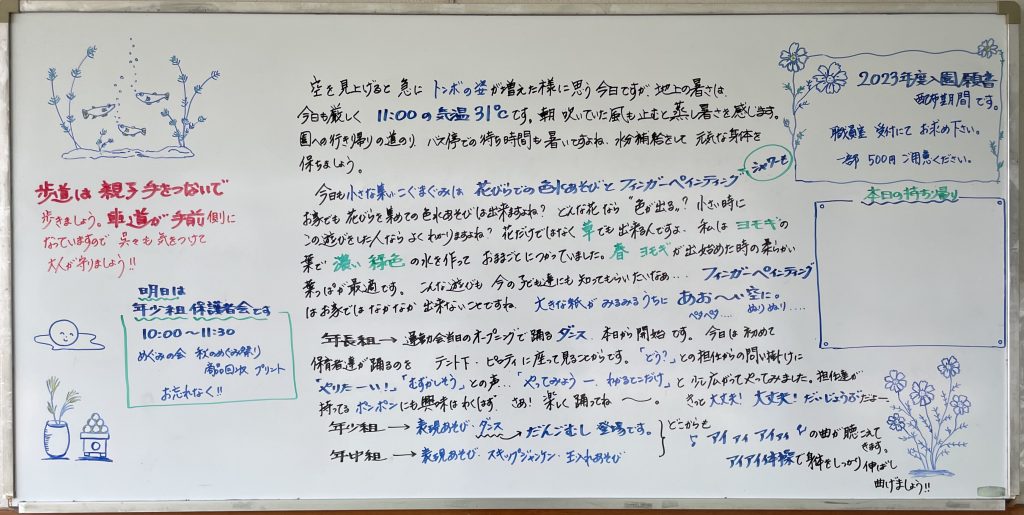 空を見上げると 急に トンボの姿が増えた様に思う 今日ですが、地上の暑さは、
今日も厳しく 11:00の気温31℃です。朝 吹いていた風も止むと蒸し暑さを感じます。
園への行き帰りの道のり、バス停での待ち時間も暑いですね、水分補給をして 元気な身体を
保ちましょう。
今日も小さな集いこぐまぐみは 花びらでの色水あそびと フィンガーペインティング シャワーも
お家でも 花びらを集めての色水あそびは出来ますね? どんな花なら "色が出る"? 小さい時に
この遊びをした人なら よくわかりますよね? 花だけではなく 草でも出来るんですよ、私は ヨモギの
葉で 濃い緑色 の水を作って おままごとにつかっていました。春 ヨモギが出始めた時の柔らかい
葉っぱが最適です。 こんな遊びも 今の子ども達にも 知ってもらいたいなぁ... フィンガーペインティング
はお家ではなかなか 出来ないことですね、 大きな紙が みるみるうちに あお〜い空に。
ペタペタ.... ぬりぬり....
年長組 → 運動会当日のオープニングで踊る ダンス 本日から開始です。 今日は 初めて
保育者達が踊るのを テント下・ピティに座って見ることからです。「どう?」との担任からの問い掛けに
「やりたーい!」「むずかしそう」との声...「やってみよう ー、わかるとこだけ」と 少し広がってやってみました。担任達が
持ってる ポンポンにも興味はわくはず さあ! 楽しく踊ってね 〜。 きっと大丈夫! 大丈夫! だいじょうぶだよー
年少組 → 表現あそび・ダンス → だんごむし 登場です。
年中組 → 表現あそび・スキップジャンケン・玉入れあそび
どこからも
♪ アイ アイ アイ アイ ♪ の曲が聴こえて
きます。
アイアイ体操で身体をしっかり伸ばし
曲げましょう!!
歩道は 親子 手をつないで
歩きましょう。車道が 手前側に
なっていますので 呉々も 気をつけて
大人が守りましょう!!
明日は
年少組 保護者会です
10:00〜11:30
めぐみの会 秋のめぐみ祭り
商品回収 プリント
お忘れなく!!
2023年度入園願書
配布期間です。
職員室 受付にて お求め下さい。
一部 500円 ご用意ください。
本日の持ち帰り